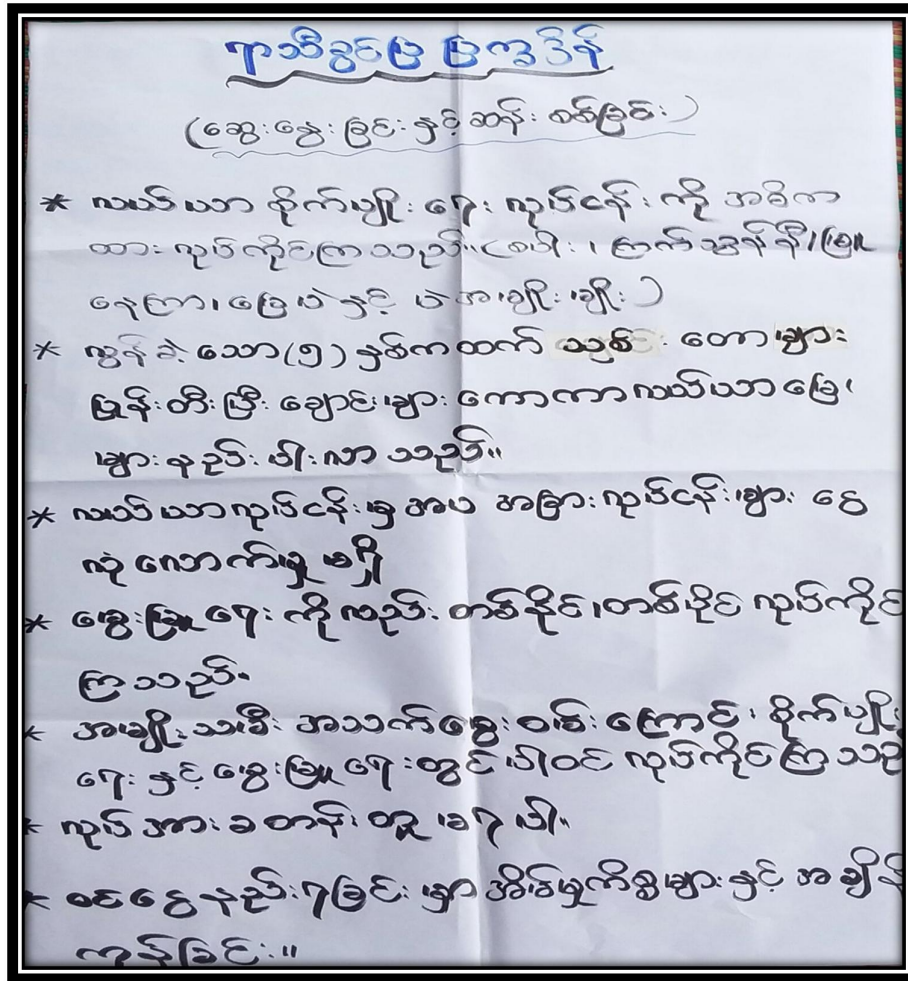 ရာသီခွင်ပြ ပြက္ခဒိန်
(ဆွေးနွေးခြင်းနှင့်ဆန်းစစ်ခြင်း)
* လယ်ယာစိုက်ပျိုးရေးလုပ်ငန်းကို အဓိက
ထားလုပ်ကိုင်ကြသည်။ (စပါး၊ ကြက်သွန်နီ/ဖြူ
နေကြာ၊ မြေပဲနှင့် ပဲအမျိုးမျိုး)
* လွန်ခဲ့သော(၅)နှစ်ကထက် သစ်တောများ
ပြုန်းတီးပြီး ချောင်းများကောကာလယ်ယာမြေ
များနည်းပါးလာသည်။
* လယ်ယာလုပ်ငန်းမှအပ အခြားလုပ်ငန်းများ ငွေ
လုံလောက်မှုမရှိ
* မွေးမြူရေးကိုလည်း တစ်နိုင်၊တစ်ပိုင် လုပ်ကိုင်
ကြသည်။
* အမျိုးသမီး အသက်မွေးဝမ်းကြောင်း စိုက်ပျိုး
ရေးနှင့်မွေးမြူရေးတွင်ပါဝင် လုပ်ကိုင်ကြသည်
* လုပ်အားခတန်းတူမရပါ။
* ဝင်ငွေနည်းရခြင်းမှာအိမ်မှုကိစ္စများနှင့် အချိန်
ကုန်ခြင်း။